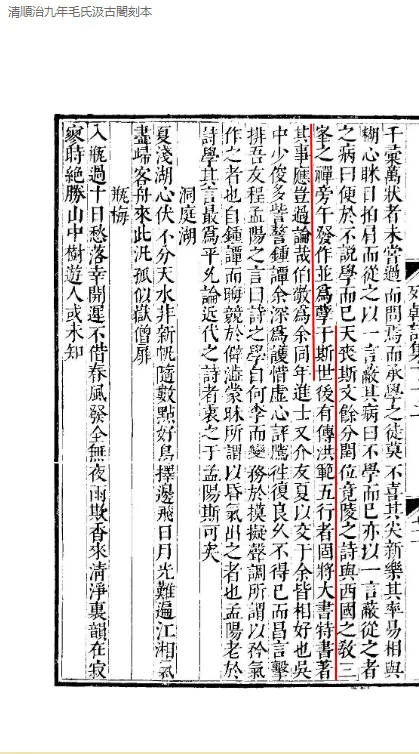 清順治九年毛氏汲古閣刻本
千彙萬狀者未嘗過而問焉而承學之徒莫不喜其尖新樂其率易相與
糊心眯目拍肩而從之以一言蔽其病曰不學而已亦以一言蔽從之者
之病曰便於不說學而已天喪斯文餘分閏位竟陵之詩與西國之敎三
峯之禪旁午發作並爲孽于斯世後有傳洪範五行者固將大書特書著
其事應豈過論哉伯敬爲余同年進士又介友夏以交于余皆相好也吳
中少俊多訾謷鍾譚余深爲護惜虛心評隲往復良久不得已而昌言擊
排吾友程孟陽之言曰詩之學自何李而變務於摸擬聲調所謂以矜氣
作之者也自鍾譚而晦競於僻澁蒙昧所謂以昏氣出之者也孟陽老於
詩學其言最爲平允論近代之詩者衷之于孟陽斯可矣
洞庭湖
夏淺湖心伏不分天水非新帆隨數點好鳥擇邊飛日月光難遍江湘氣
盡歸客舟來此汎孤似嶽僧扉
瓶梅
入瓶過十日愁落幸開遲不借春風發全無夜雨欺香來清淨裏韻在寂
寥時絕勝山中樹遊人或未知